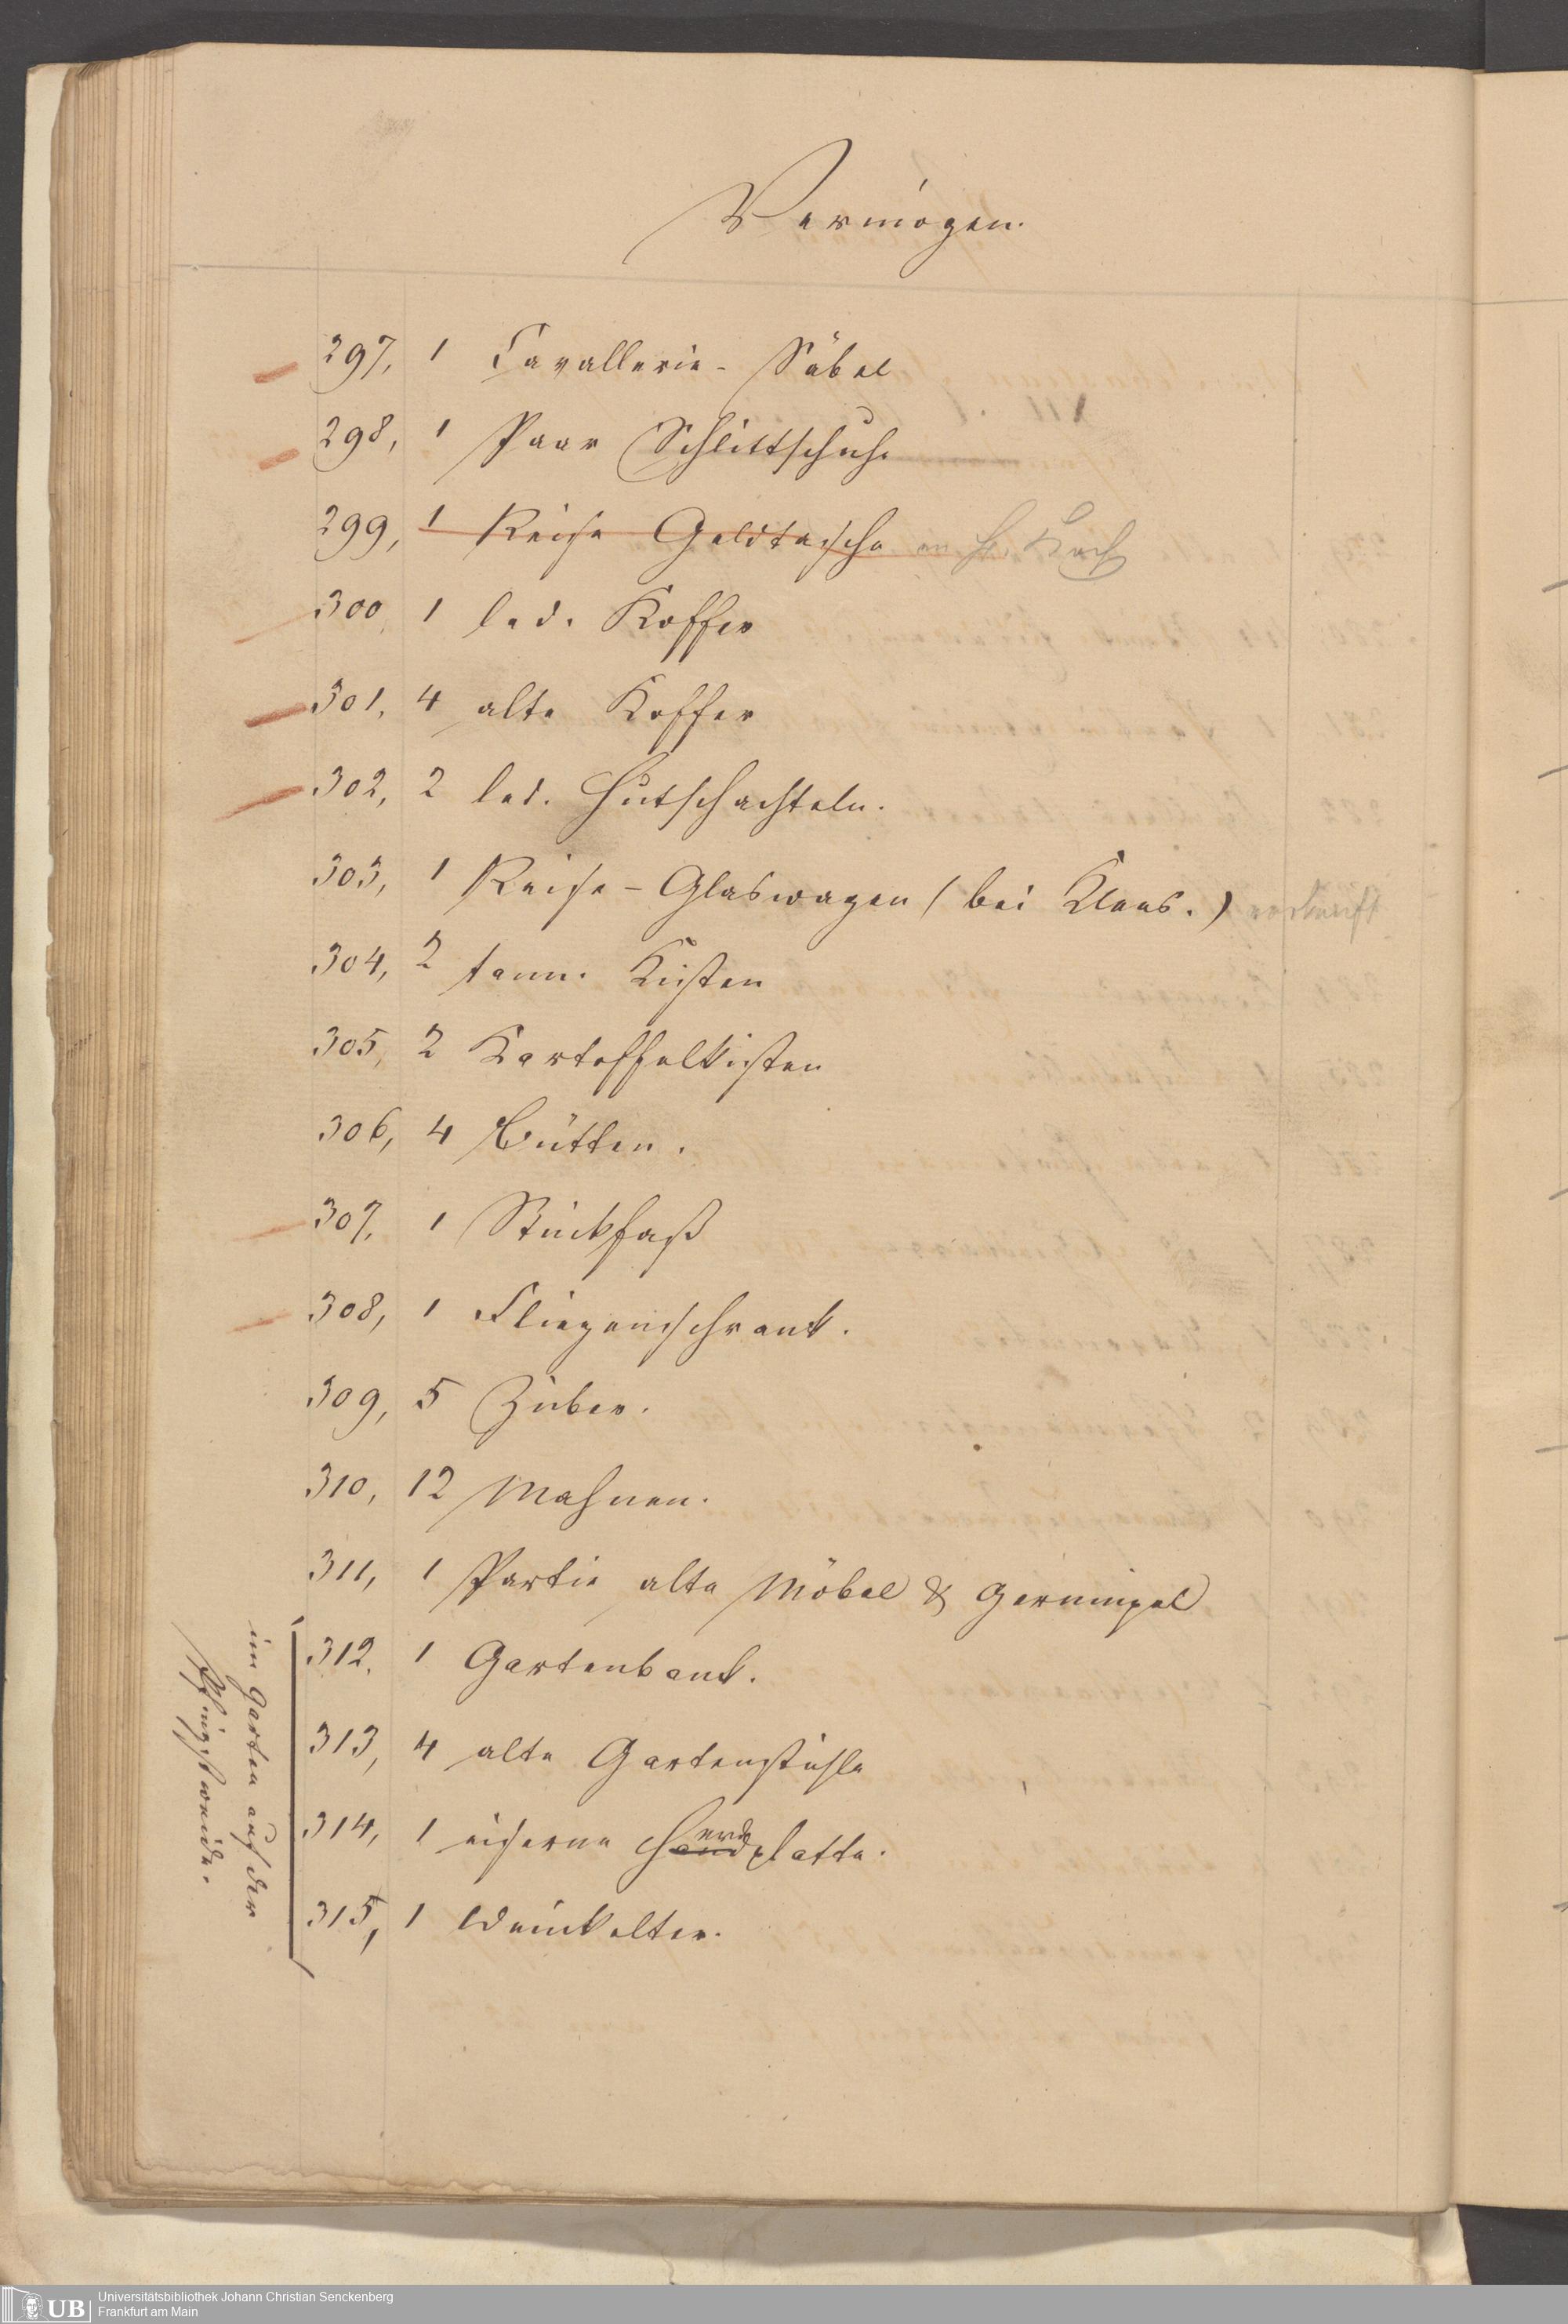 Vermögen.
297, 1 Cavallerie-Säbel
298, 1 Paar Schlittschuh.
299, 1 Reise Geldtasche an H. Koch
300, 1 led. Koffer
301, 4 alte Koffer
302, 2 led. Hutschachteln.
303, 1 Reise-Glaswagen (bei Klees.) verkauft
304, 2 tann. Kisten
305, 2 Kartoffelkisten
306, 4 Bütten.
307, 1 Stückfaß
308, 1 Fliegenschrank.
309, 5 Züber.
310, 12 Mahnen.
311, 1 Partie alte Möbel & Gerümpel
312, 1 Gartenbank.
313, 4 alte Gartenstühle
314, 1 eiserne Handplatte. erd
315, 1 Weinkelter.
im Garten auf der
Pfingstweide.
Universitätsbibliothek Johann Christian Senckenberg
Frankfurt am Main
UB